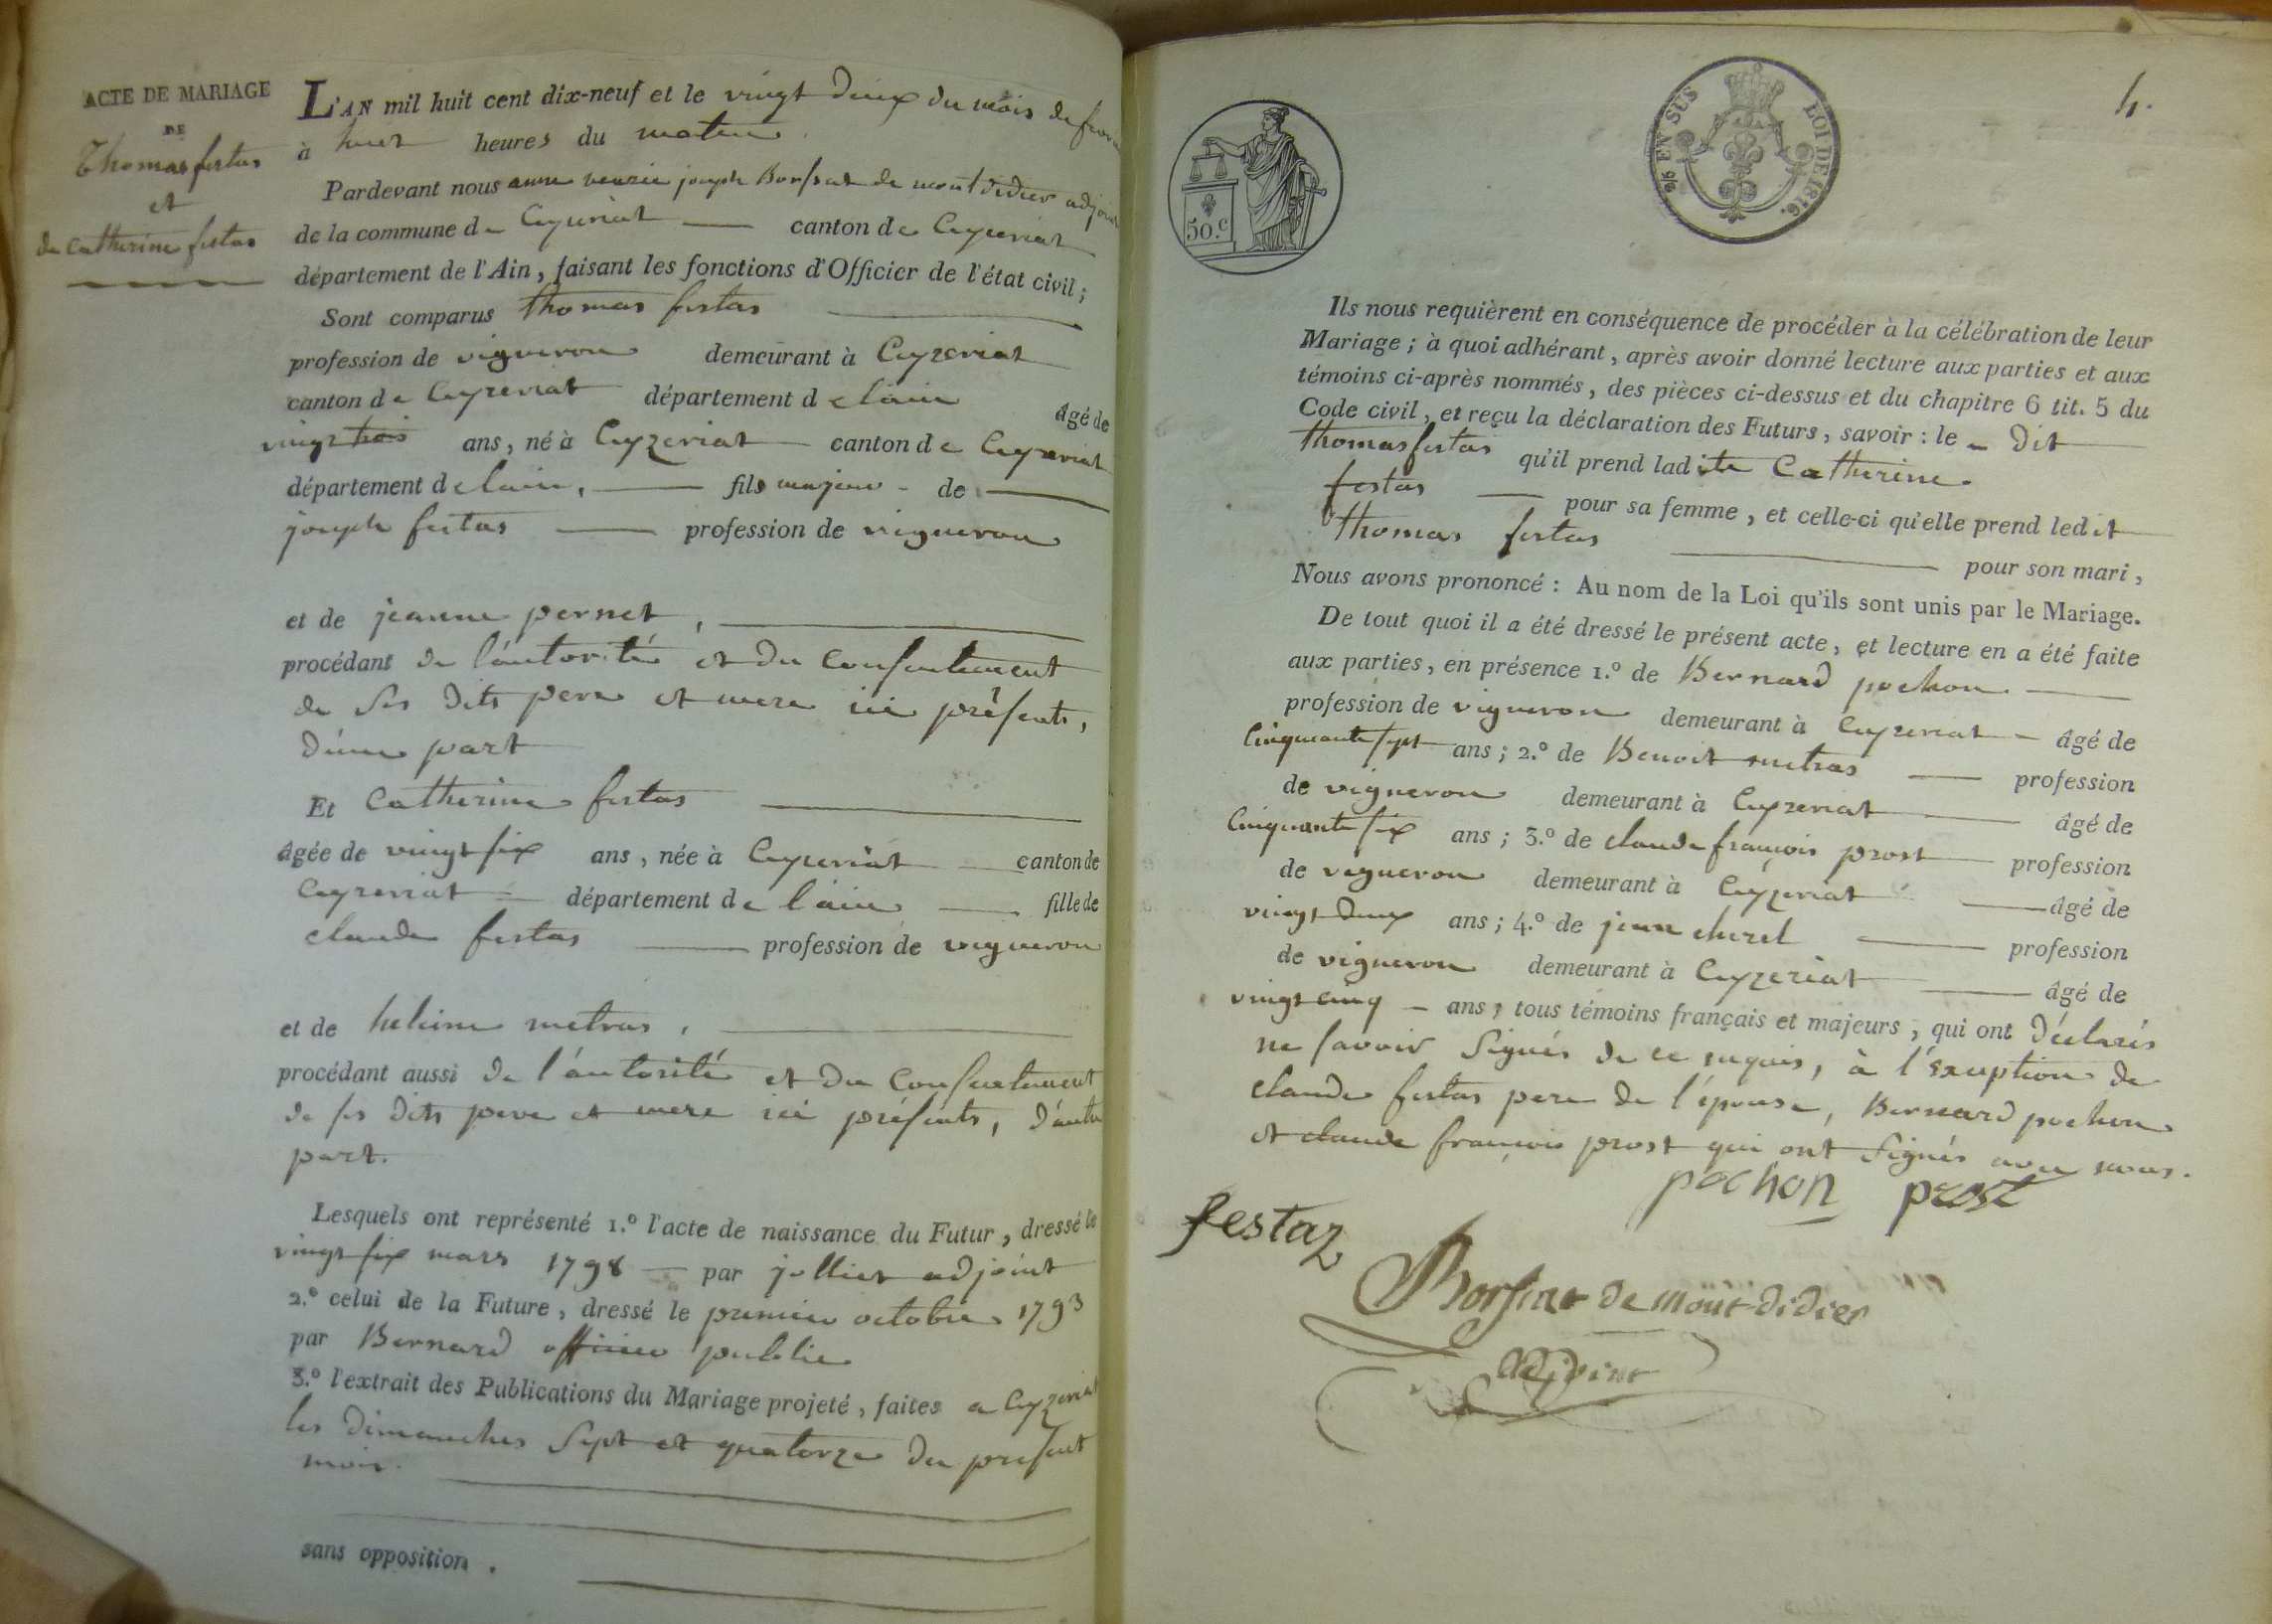 ACTE DE MARIAGE
DE
Thomas festas
et
de Catherine festas
L'AN mil huit cent dix-neuf et le vingt deux du mois de
à huit heures du matin
Pardevant nous joseph Borssat de montdidier adjoint
de la commune de Ceyzeriat canton de Ceyzeriat
département de l'Ain, faisant les fonctions d'Officier de l'état civil;
Sont comparus thomas festas
profession de vigneron demeurant à Ceyzeriat
canton de Ceyzeriat département de lain âgé de
vingt ans, né à Ceyzeriat canton de Ceyzeriat
département de lain, fils majeur de
joseph festas profession de vigneron
et de jeanne pernet,
procédant de l'autorité et du Consentement
de ses dits pere et mere ici présents,
d'une part
Et Catherine festas
âgée de vingt six ans, née à Ceyzeriat canton de
Ceyzeriat département de l'ain fille de
claude festas profession de vigneron
et de heleine metras,
procédant aussi de l'autorité et du Consentement
de ses dits pere et mere ici présents, d'autre
part.
Lesquels ont représenté 1.º l'acte de naissance du Futur, dressé le
vingt six mars 1798 par jolliet adjoint
2.º celui de la Future, dressé le premier octobre 1793
par Bernard officier public
3.º l'extrait des Publications du Mariage projeté, faites a Ceyzeriat
les dimanches sept et quatorze du présent
mois.
sans opposition.
4.
50.C
% EN SUS LOI DE 1816.
Ils nous requièrent en conséquence de procéder à la célébration de leur
Mariage; à quoi adhérant, après avoir donné lecture aux parties et aux
témoins ci-après nommés, des pièces ci-dessus et du chapitre 6 tit. 5 du
Code civil, et reçu la déclaration des Futurs, savoir: le dit
thomas festas qu'il prend ladite Catherine
festas pour sa femme, et celle-ci qu'elle prend ledit
thomas festas pour son mari,
Nous avons prononcé: Au nom de la Loi qu'ils sont unis par le Mariage.
De tout quoi il a été dressé le présent acte, et lecture en a été faite
aux parties, en présence 1.º de Bernard pochon
profession de vigneron demeurant à Ceyzeriat âgé de
Cinquante sept ans; 2.º de Benoit metras profession
de vigneron demeurant à Ceyzeriat âgé de
Cinquante six ans; 3.º de claude françois prost profession
de vigneron demeurant à Ceyzeriat âgé de
vingt deux ans; 4.º de jean profession
de vigneron demeurant à Ceyzeriat âgé de
vingt cinq ans, tous témoins français et majeurs, qui ont déclarés
ne savoir signés de ce requis, à l'exception de
claude festas pere de l'épouse, Bernard pochon
et claude françois prost qui ont signés avec nous.
pochon prost
festaz
Borssat de mont-didier
Adjoint